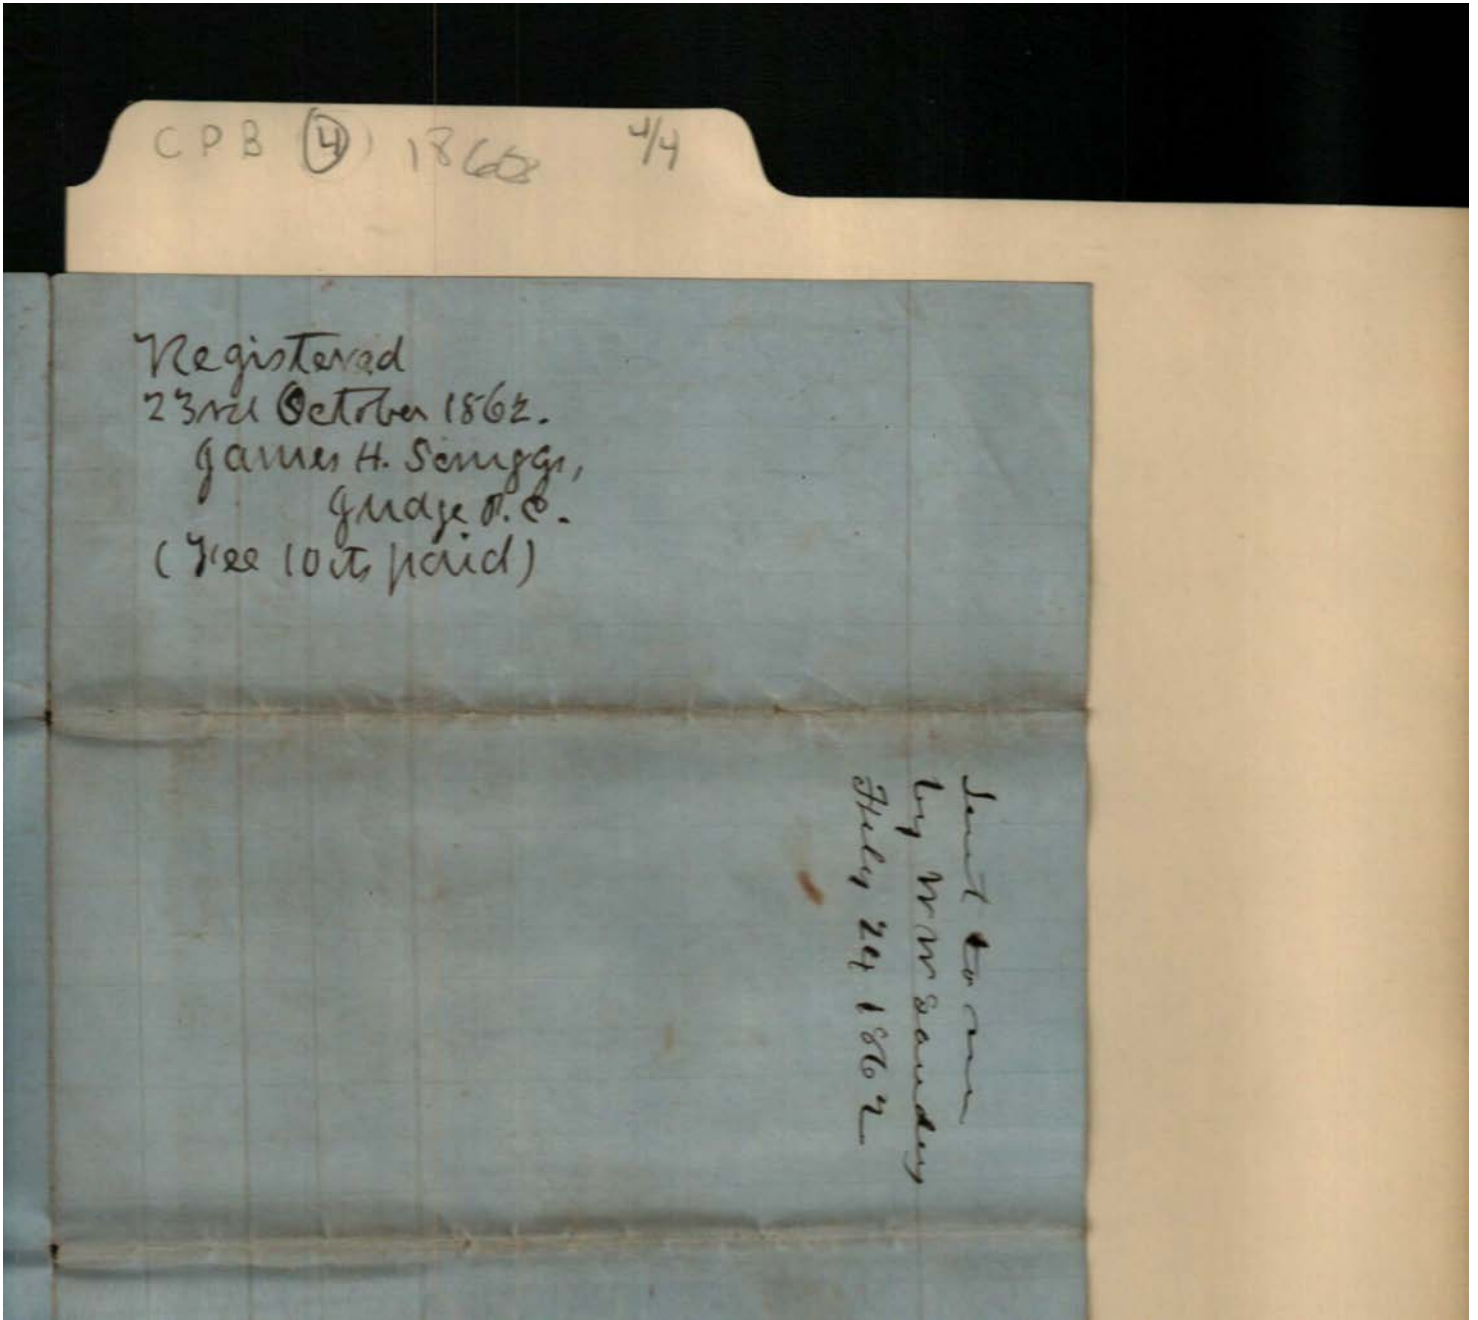 CPB (4) 1868 4/4
Registered
23rd October 1862.
James H. Scruggs,
Judge P.C.
(Fee 10 cts paid)
Sent to me
by W W Sanders
July 24 1862